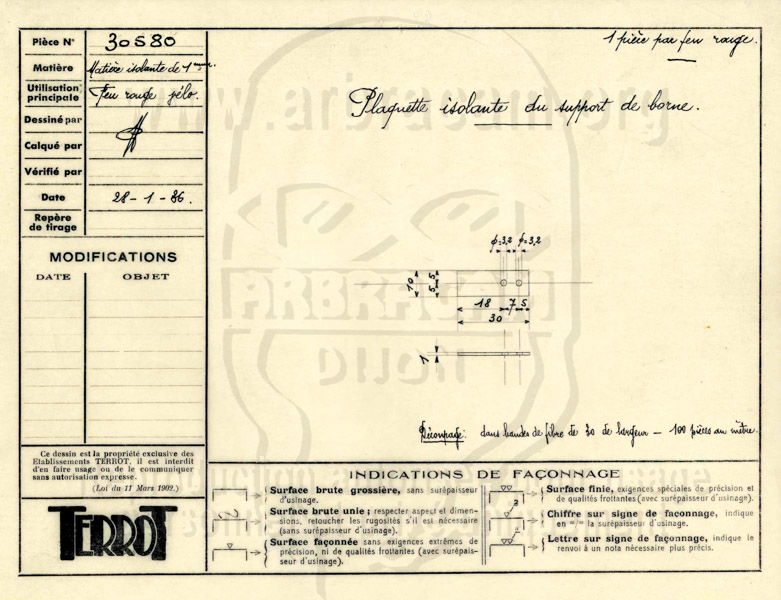 Pièce N° 30580
Matière Matière isolante de 1 mm.
Utilisation principale Feu rouge vélo.
Dessiné par
Calqué par
Vérifié par
Date 28-1-36.
Repère de tirage
MODIFICATIONS
DATE OBJET
Ce dessin est la propriété exclusive des
Etablissements TERROT, il est interdit
d'en faire usage ou de le communiquer
sans autorisation expresse.
(Loi du 11 Mars 1902.)
TERROT
1 pièce par feu rouge.
Plaquette isolante du support de borne.
www.arbracam.org
ARBRACAM
DIJON
φ=3,2 φ=3,2
10 5 5
18 7 5
30
1
Découpage: dans bandes de fibre de 30 de largeur - 100 pièces au mètre.
INDICATIONS DE FAÇONNAGE
Surface brute grossière, sans surépaisseur
d'usinage.
Surface brute unie; respecter aspect et dimen-
sions, retoucher les rugosités s'il est nécessaire
(sans surépaisseur d'usinage).
Surface façonnée sans exigences extrêmes de
précision, ni de qualités frottantes (avec surépais-
seur d'usinage).
Surface finie, exigences spéciales de précision et
de qualités frottantes (avec surépaisseur d'usinage).
Chiffre sur signe de façonnage, indique
en m/m la surépaisseur d'usinage.
Lettre sur signe de façonnage, indique le
renvoi à un nota nécessaire plus précis.